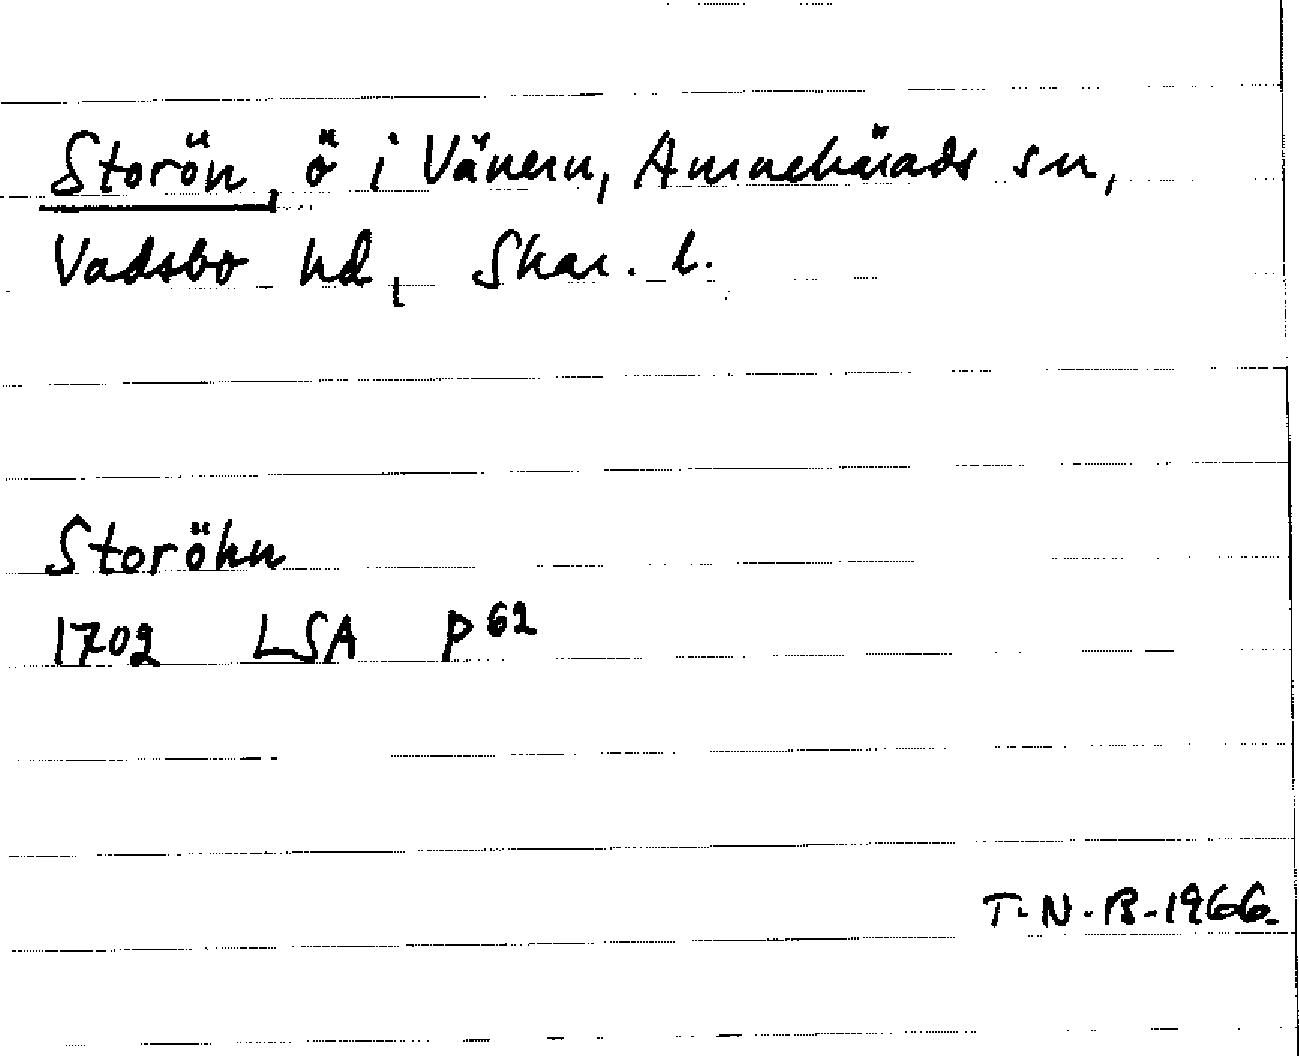 Storön, ö i Vänern, Amnehärads sn,
Vadsbo hd, Skar. l.
Storöhn
1702 LSA P 62
T.N.B. 1966.